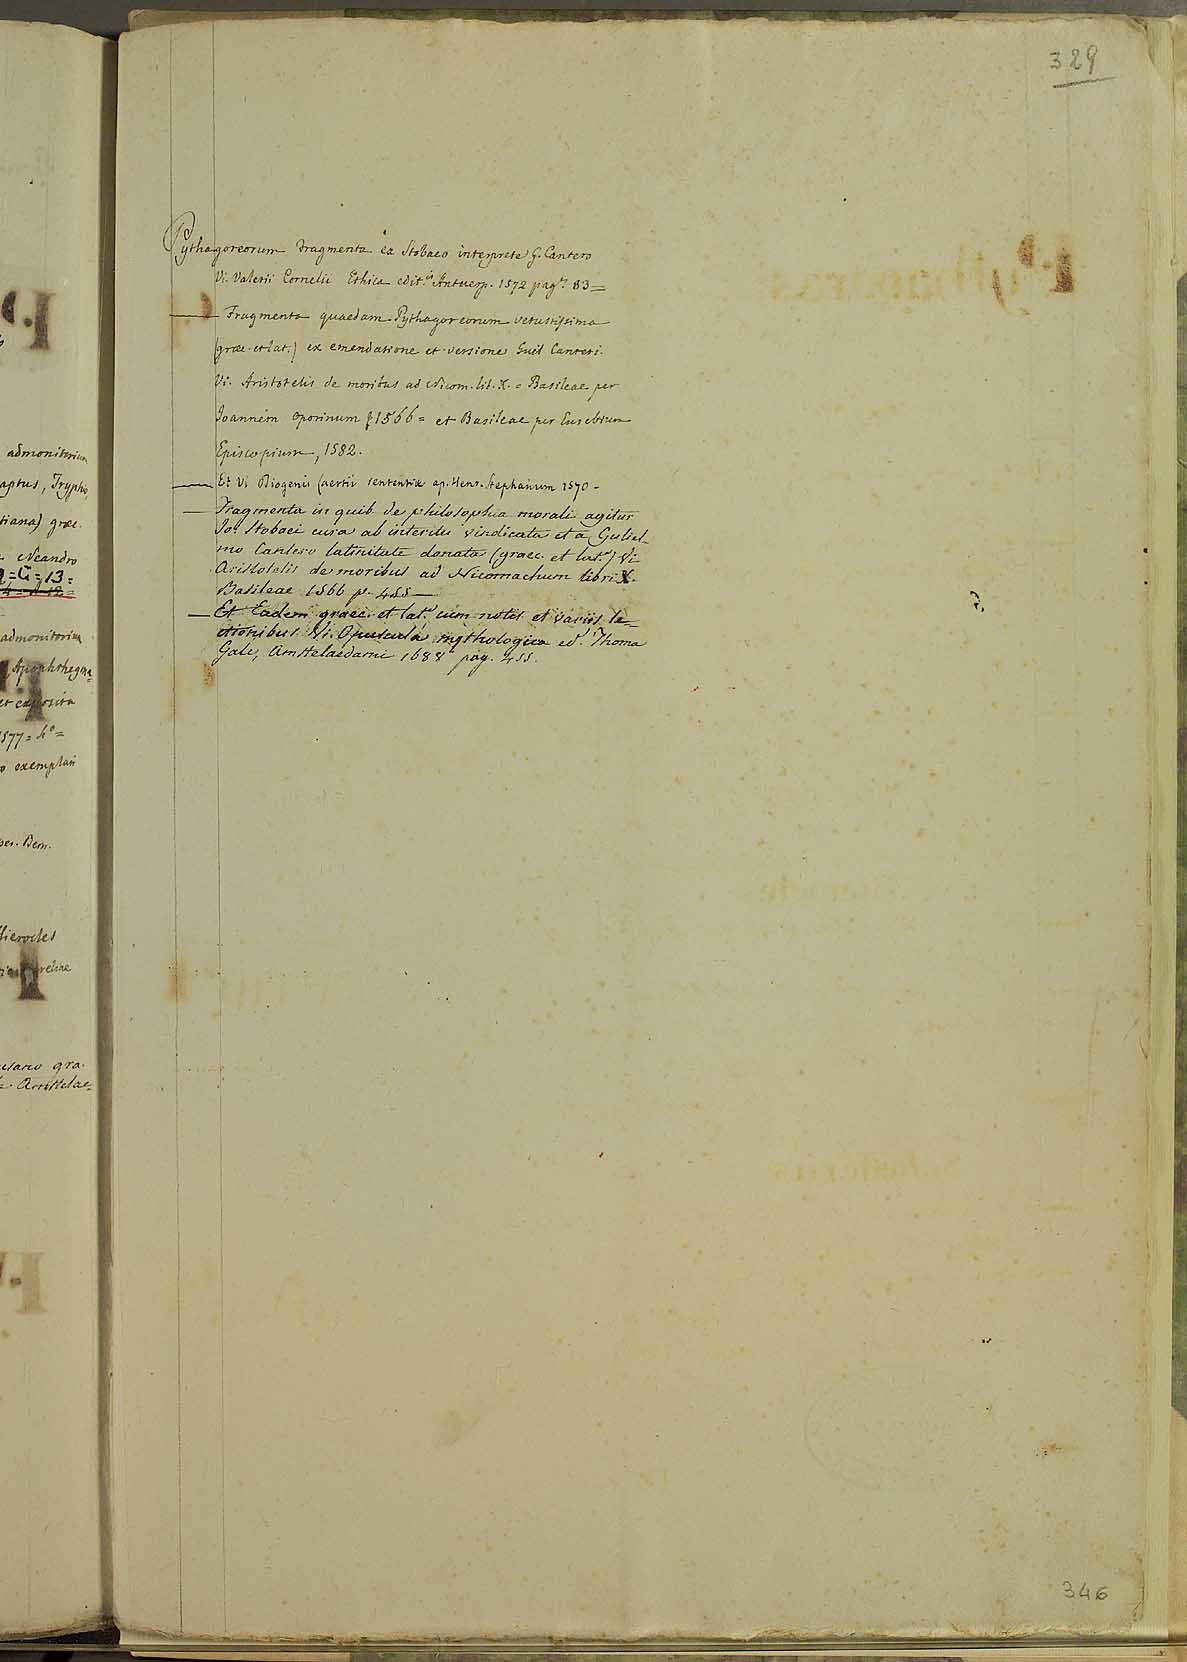 329
Pythagoreorum Fragmenta ex Stobaeo interprete G. Cantero
Vi. Valerii Cornelii Ethica edit.s Antuerp. 1572 pag.e 83=
— Fragmenta quaedam Pythagoreorum vetustissima
(graec. et lat.) ex emendatione et versione Guil Canteri.
Vi. Aristotelis de moribus ad Nicom. lib. X. = Basileae per
Joannem Oporinum 1566= et Basileae per Eusebium
Episcopium, 1582.
— Et Vi Diogenis Laertii sententiae ap. Henr. Stephanum 1570-
— Fragmenta in quib. de philosophia morali agitur
Jo. Stobaei cura ab interitu vindicata et a Guliel-
mo Cantero latinitate donata (graec. et lat.e) Vi
Aristotelis de moribus ad Nicomachum libri X.
Basileae 1566 p. 455—
— Et Eadem graec. et lat.e cum notis et variis le-
ctionibus. Vi. Opuscula mythologica ed.e Thoma
Gale, Amstelaedami 1688 pag. 455.
admonitorium
aptus, Tryphio
tiana) graec.
Neandro
=G=13=
admonitorium
Apophthegma=
et exposita
1577=4°=
exemplari
per. Bern.
Hierocles
gra.
Amstelae=
346